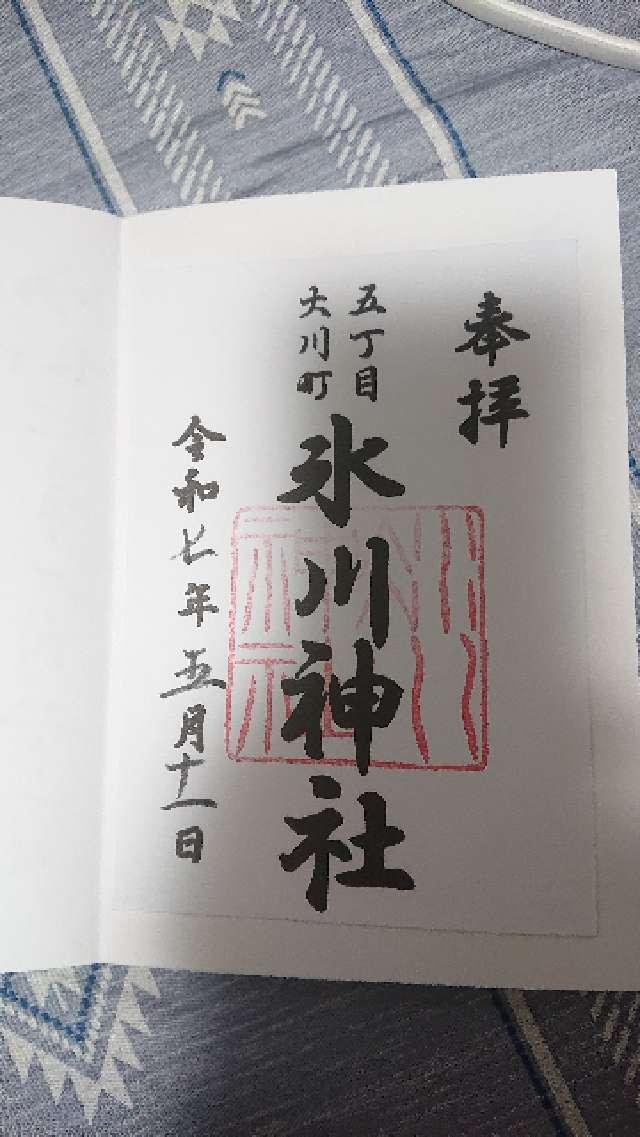 奉拝
五丁目
大川町
氷川神社
令和七年五月十一日
氷川神社